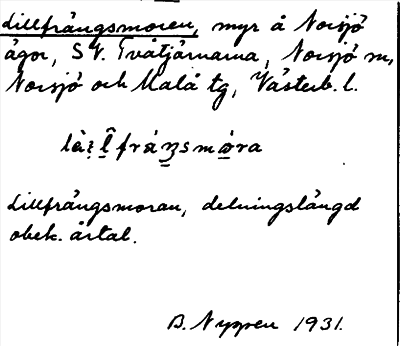 Lillfrångsmoran, myr å Norsjö
ägor, S V. Tvåtjärnarna, Norsjö sn,
Norsjö och Malå tg, Västerb. l.
Lillfrångsmoran, delningslängd
obek. årtal.
B. Nygren 1931.